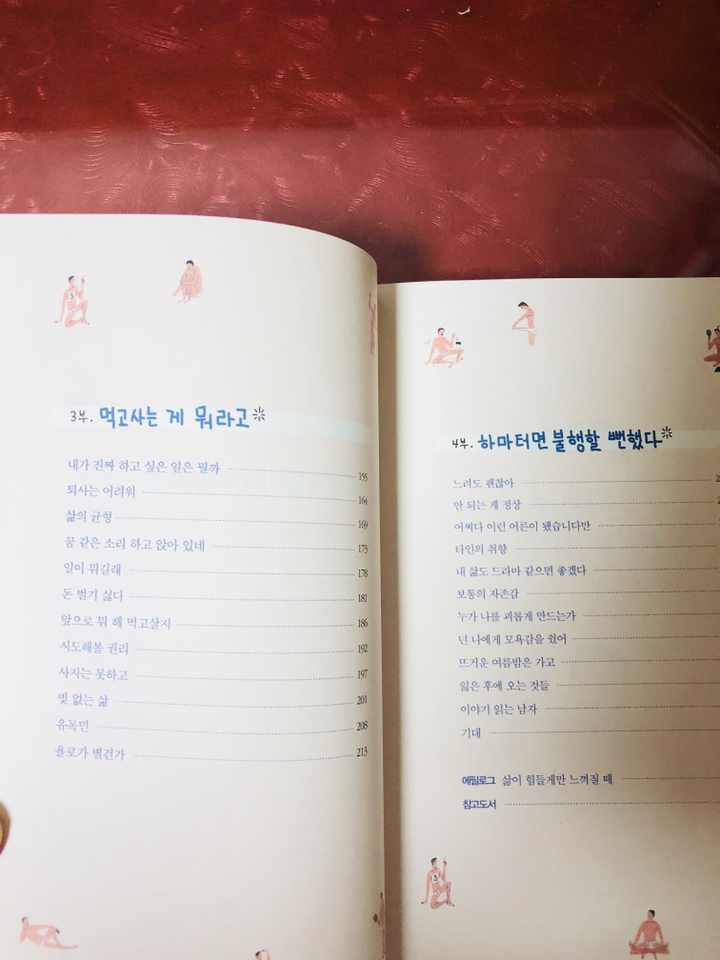 3부. 먹고사는 게 뭐라고
내가 진짜 하고 싶은 일은 뭘까 155
퇴사는 어려워 164
삶의 균형 169
꿈 같은 소리 하고 앉아 있네 173
일이 뭐길래 178
돈 벌기 싫다 181
앞으로 뭐 해 먹고살지 186
시도해볼 권리 192
사자는 못하고 197
빚 없는 삶 201
유목민 208
욜로가 별건가 213
4부. 하마터면 불행할 뻔했다
느려도 괜찮아
안 되는 게 정상
어쩌다 이런 어른이 됐습니다만
타인의 취향
내 삶도 드라마 같으면 좋겠다
보통의 자존감
누가 나를 괴롭게 만드는가
넌 나에게 모욕감을 줬어
뜨거운 여름밤은 가고
잃은 후에 오는 것들
이야기 읽는 남자
기대
에필로그 삶이 힘들게만 느껴질 때
참고도서